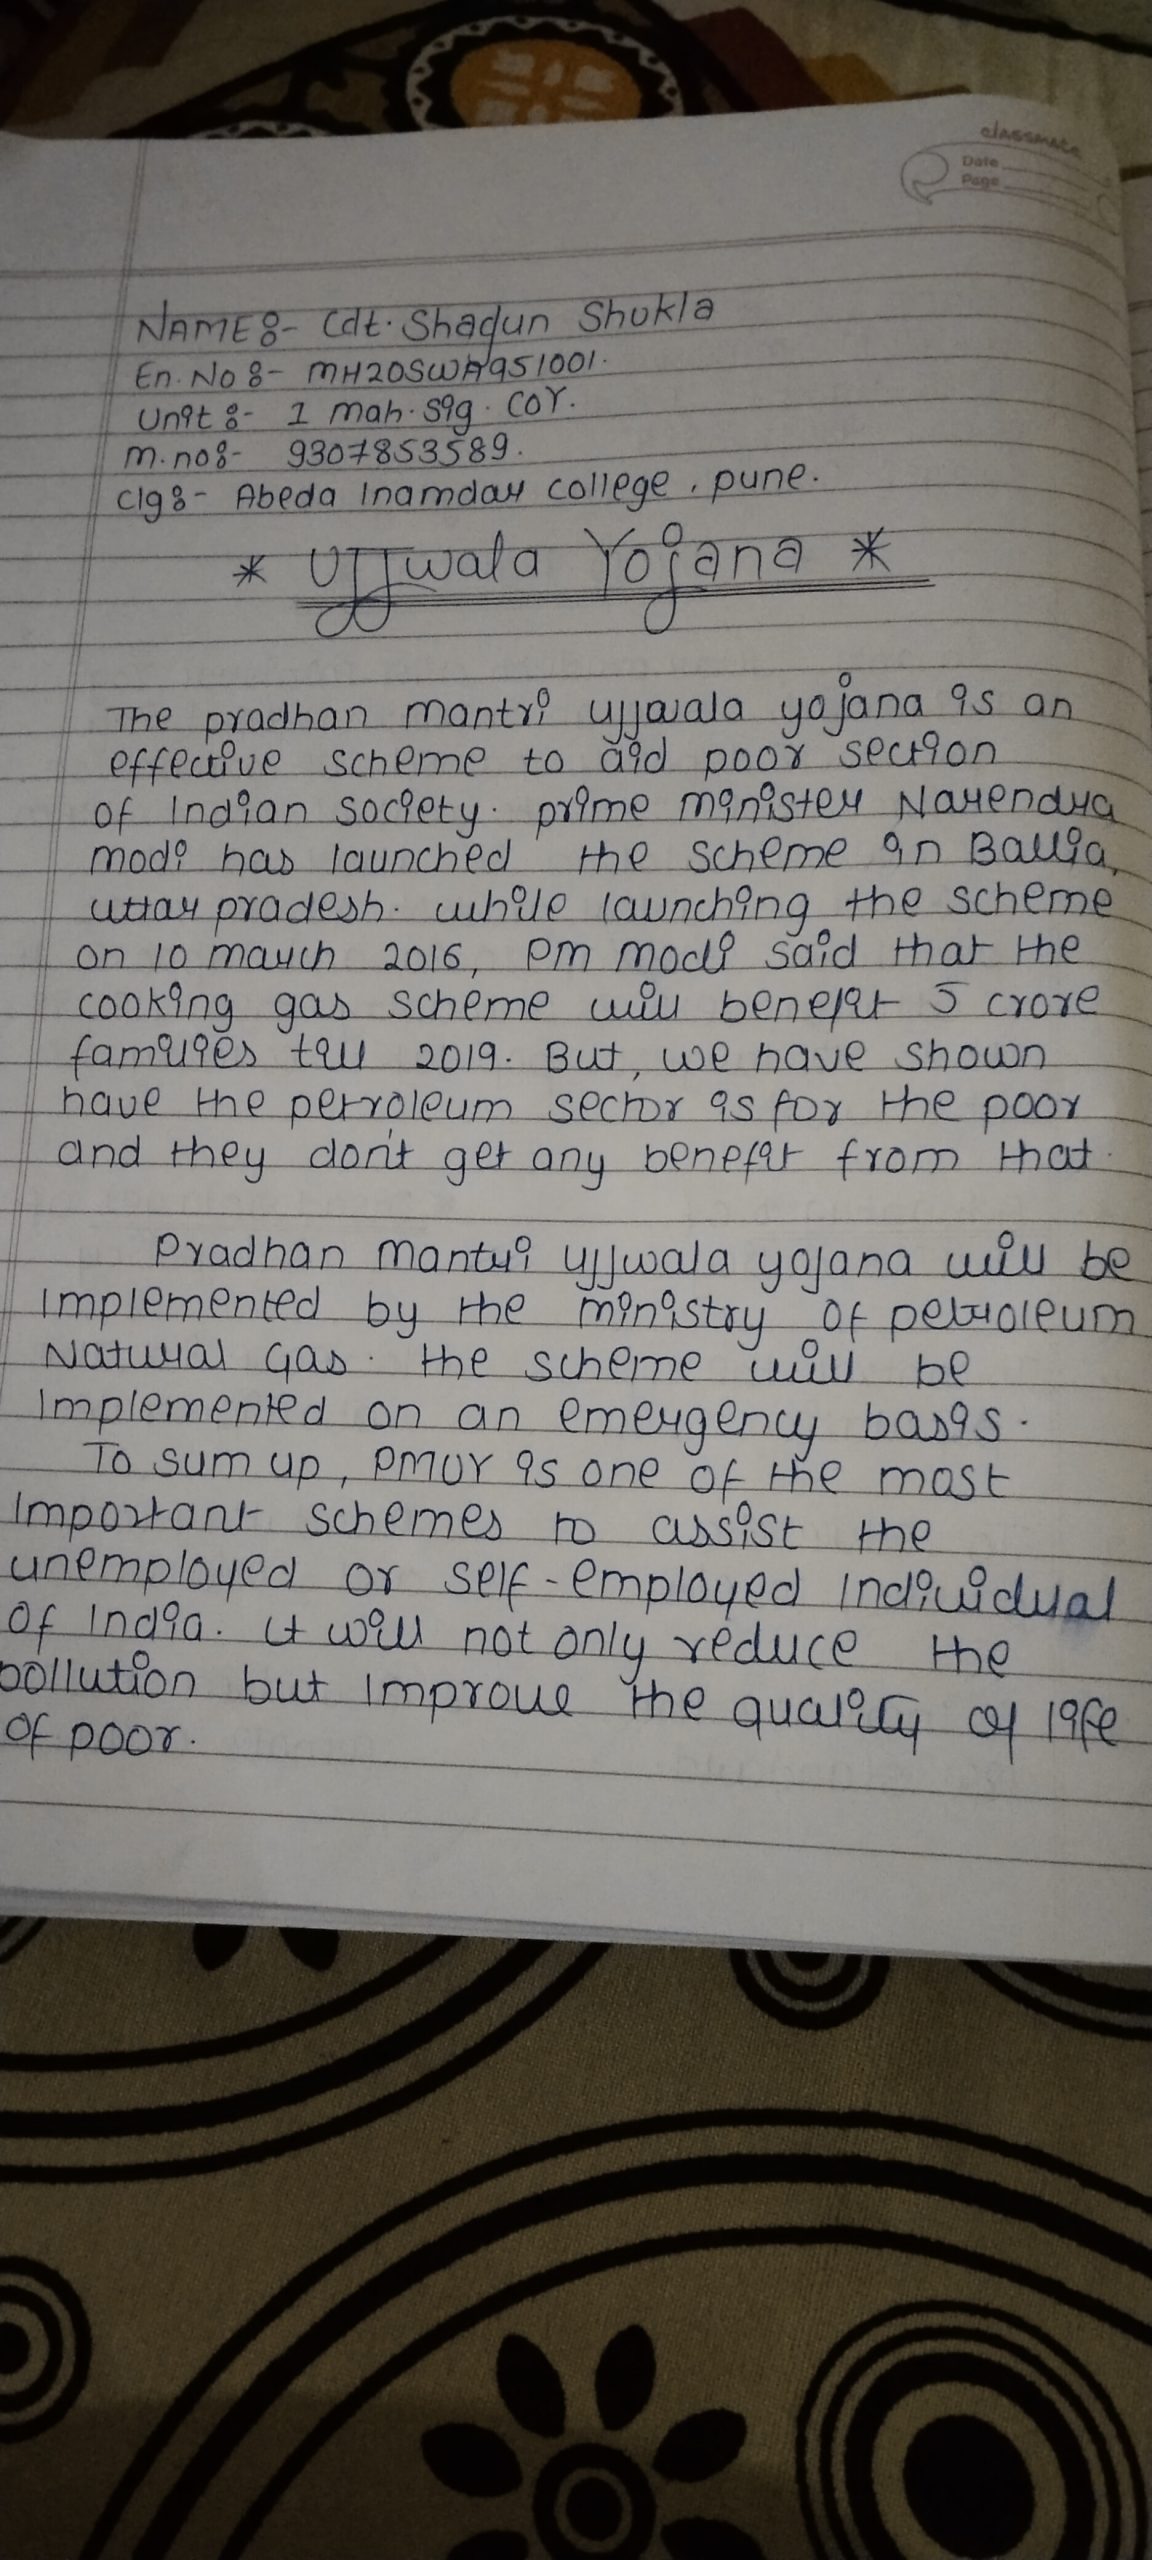 classmate
Date
Page
NAME :- Cdt. Shagun Shukla
En. No :- MH20SWA951001.
Unit :- 1 mah. sig. COY.
m.no:- 9307853589.
clg :- Abeda Inamdar college, pune.
* Ujjwala Yojana *
The pradhan mantri ujjwala yojana is an
effective scheme to aid poor section
of Indian society. prime minister Narendra
modi has launched the scheme in Ballia,
uttar pradesh. while launching the scheme
on 10 march 2016, PM modi said that the
cooking gas scheme will benefit 5 crore
families till 2019. But, we have shown
have the petroleum sector is for the poor
and they don't get any benefit from that.
Pradhan mantri ujjwala yojana will be
implemented by the ministry of petroleum
Natural Gas. the scheme will be
implemented on an emergency basis.
To sum up, PMUY is one of the most
important schemes to assist the
unemployed or self-employed individual
of India. it will not only reduce the
pollution but improve the quality of life
of poor.